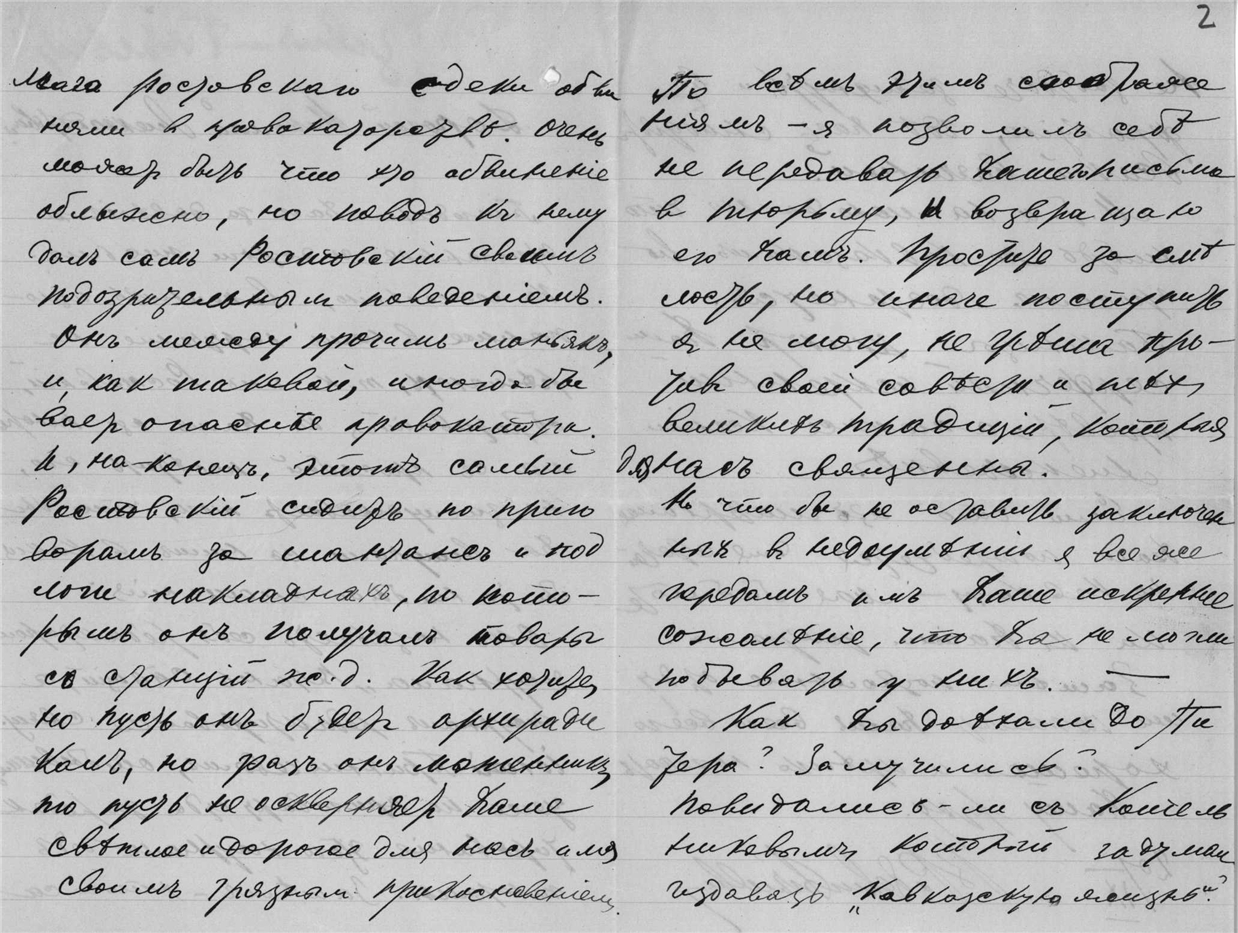 2
мага ростовскаго эсдеки обви
няли в провокаторствѣ. Очень
может быть что это обвиненіе
облыжно, но поводъ къ нему
далъ самъ Ростовскій своимъ
подозрительным поведеніемъ.
Онъ между прочимъ маньякъ,
и, как таковой, иногда бы
вает опаснѣе провокатора.
И, на-конецъ, этотъ самый
Ростовскій сидитъ по приго
ворамъ за шантажъ и под
логи накладныхъ, по кото-
рымъ онъ получалъ товары
со станцій ж.д. Как хотите,
но пусть онъ будет архиради
калъ, но разъ онъ мошенникъ,
то пусть не оскверняет Ваше
свѣтлое и дорогое для насъ имя
своимъ грязным прикосновеніемъ.
По всѣмъ этимъ соображе
ніямъ – я позволилъ себѣ
не передавать Вашего письма
в тюрьму, и возвращаю
его Вамъ. Простите за смѣ
лость, но иначе поступить
я не могу, не грѣша про-
тив своей совѣсти и тѣхъ
великихъ традицій, которыя
для насъ священны.
Но что бы не оставить заключен
ных в недоумѣніи я все же
передамъ имъ Ваше искреннее
сожалѣніе, что Вы не могли
побывать у нихъ. —
Как Вы доѣхали до Пи
тера? Замучились?
Повидались-ли съ Котель
никовымъ, который задумал
издавать „Кавказскую жизнь“?